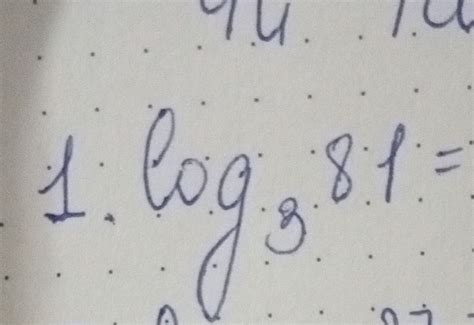 1. log₃ 81 =